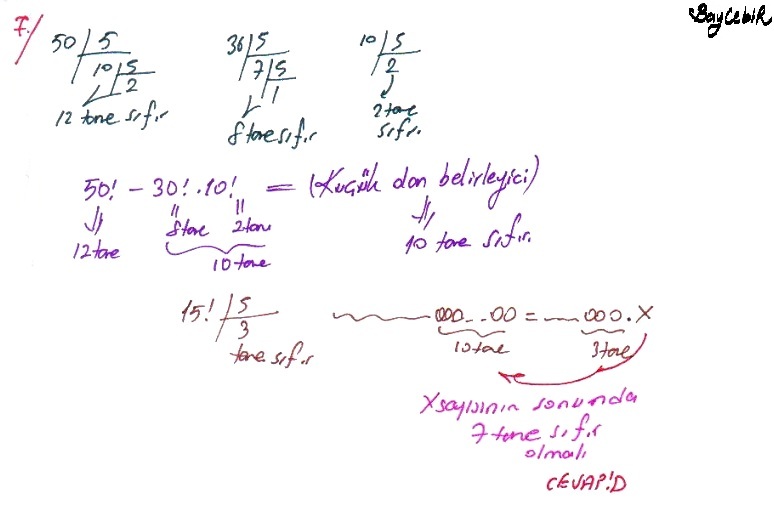 BAYCEBİR
7/ 50 | 5 36 | 5 10 | 5
10 | 5 7 | 5 2
2 1
12 tane sıfır 8 tane sıfır 2 tane sıfır
50! - 30! . 10! = (Küçük olan belirleyici)
12 tane 8 tane 2 tane 10 tane sıfır
10 tane
15! | 5 000...00 = 000.X
3 10 tane 3 tane
tane sıfır
X sayısının sonunda
7 tane sıfır
olmalı
CEVAP:D